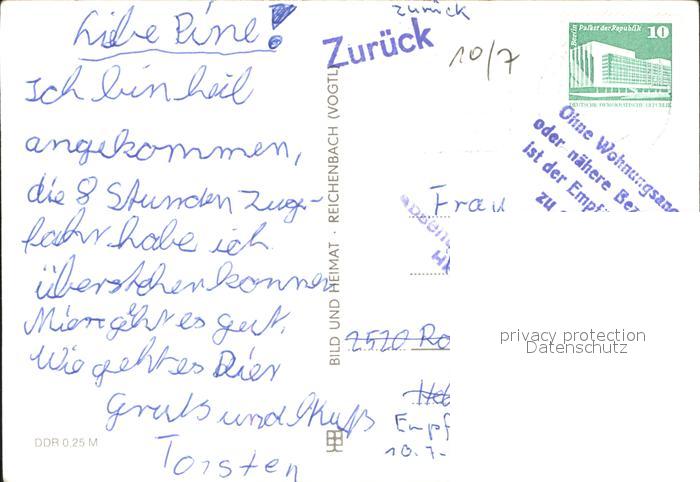 Liebe Pine!
Ich bin heil
angekommen,
die 8 Stunden Zuge-
fahr habe ich
überstehen können
Mier geht es gut.
Wie geht es Dier
Gruß und Kuß
Torsten
DDR 0,25 M
BILD UND HEIMAT · REICHENBACH (VOGTL
zurück
Zurück
10/7
Berlin Palast der Republik
10
DEUTSCHE DEMOKRATISCHE REPUBLIK
Ohne Wohnungsang
oder nähere Bez
ist der Empf
zu
Frau
2520 Ro
Empf
10.7.
privacy protection
Datenschutz